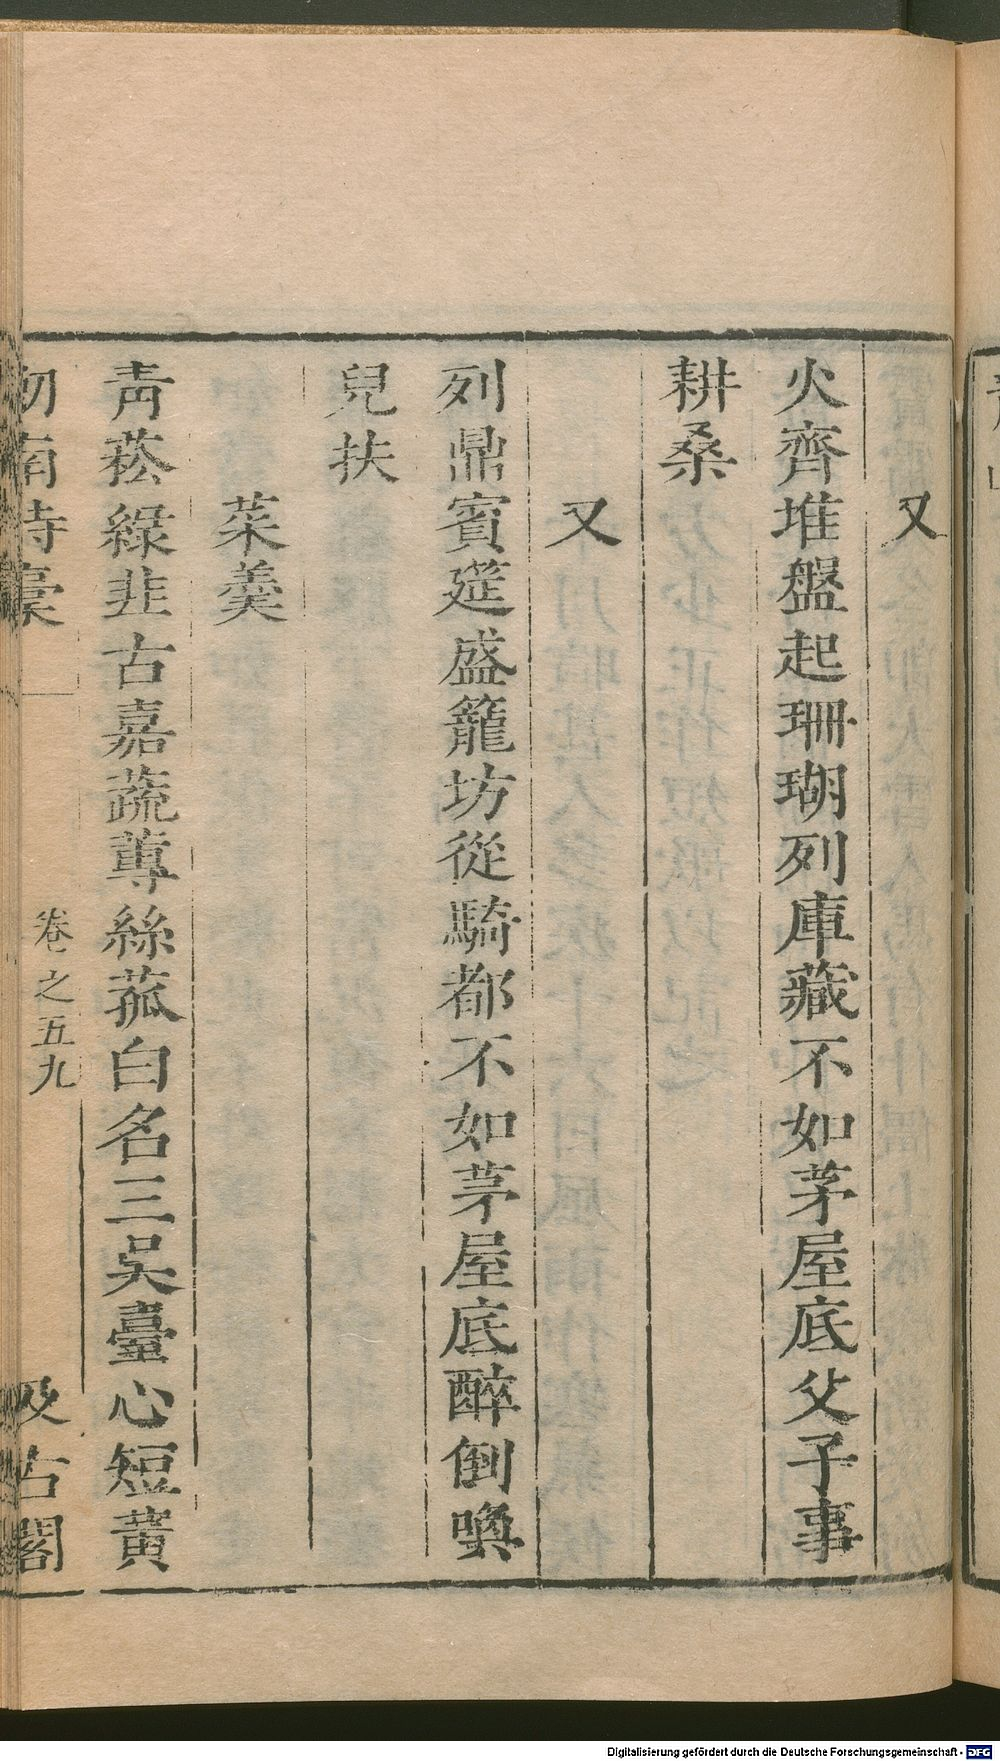 又
火齊堆盤起珊瑚列庫藏不如茅屋底父子事
耕桑
又
列鼎賓筵盛籠坊從騎都不如茅屋底醉倒喚
兒扶
菜羹
青菘綠韭古嘉蔬蓴絲菰白名三吳臺心短黃
南詩稾
卷之五九
汲古閣
Digitalisierung gefördert durch die Deutsche Forschungsgemeinschaft - DFG